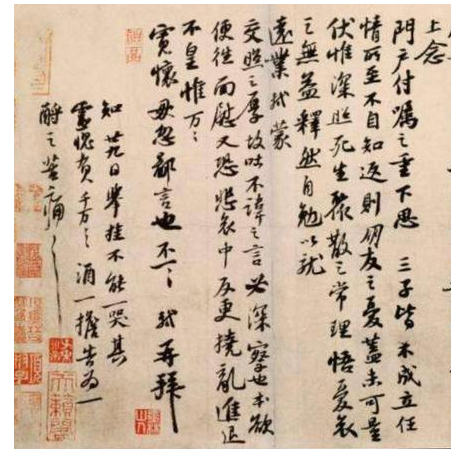 上念
門戶付囑之重下思 三子皆不成立任
情所至不自知返則朋友之憂蓋未可量
伏惟深照死生聚散之常理悟憂哀
之無益釋然自勉以就
遠業軾蒙
交照之厚故吐不諱之言必深察也本欲
便往面慰又恐悲哀中反更撓亂進退
不皇惟万〻
寬懷毋忽鄙言也不一〻 軾再拜
知廿九日舉掛不能一哭其
靈愧負千万〻酒一擔告為一
酹之苦痛〻